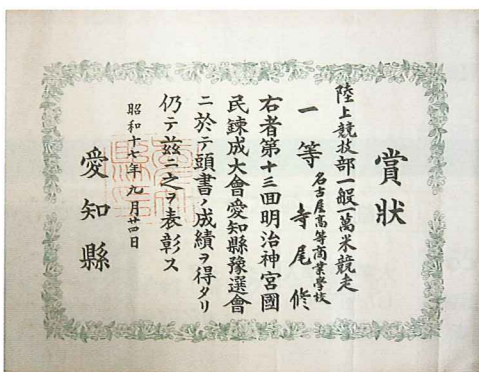 賞狀
陸上競技部一般一萬米競走
一等 名古屋高等商業學校 寺尾修
右者第十三回明治神宮國
民鍊成大會愛知縣豫選會
ニ於テ頭書ノ成績ヲ得タリ
仍テ茲ニ之ヲ表彰ス
昭和十七年九月廿四日
愛知縣